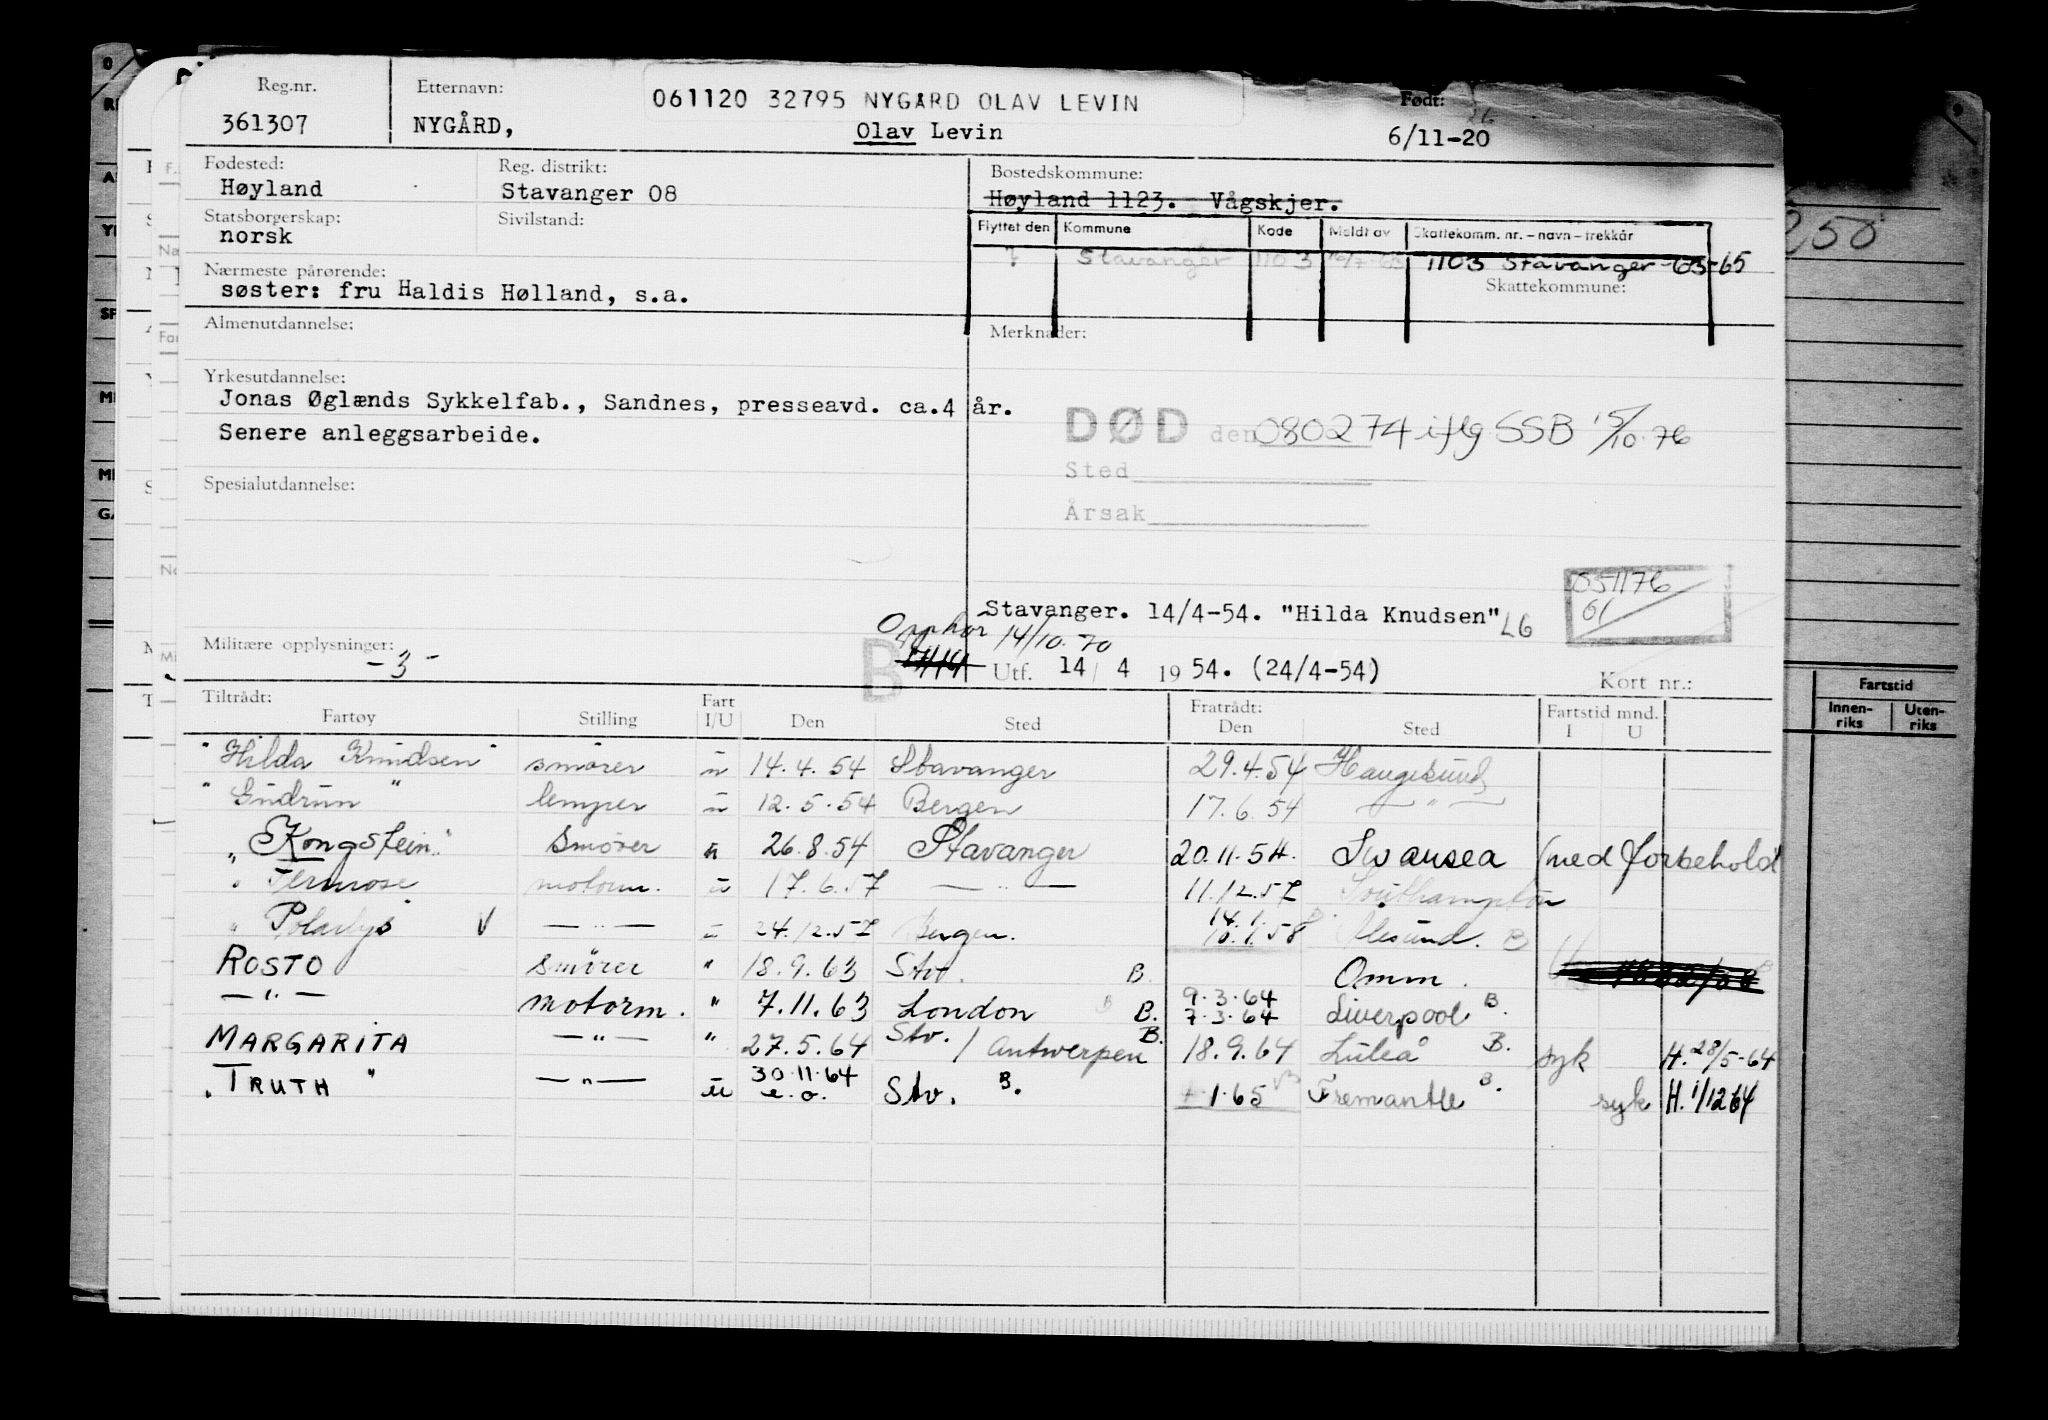 Reg.nr. Etternavn: 061120 32795 NYGÅRD OLAV LEVIN Født:
361307 NYGÅRD, Olav Levin 6/11-20
26
Fødested: Reg. distrikt: Bostedskommune:
Høyland Stavanger 08 Høyland 1123. Vågskjer.
Statsborgerskap: Sivilstand:
norsk
Flyttet den Kommune Kode Meldt av Skattekomm. nr. – navn – trekkår
Stavanger 1103 1103 Stavanger -63-65
Nærmeste pårørende: Skattekommune:
søster: fru Haldis Hølland, s.a.
Almenutdannelse: Merknader:
Yrkesutdannelse:
Jonas Øglænds Sykkelfab., Sandnes, presseavd. ca.4 år.
Senere anleggsarbeide.
DØD den 080274 iflg SSB 15/10.76
Sted
Årsak
Spesialutdannelse:
051176
61
Stavanger. 14/4-54. "Hilda Knudsen" LG
Opphør 14/10.70
Militære opplysninger: -3- B Utf. 14/ 4 19 54. (24/4-54) Kort nr.:
Tiltrådt: Fart Fratrådt: Fartstid mnd.
Fartøy Stilling I/U Den Sted Den Sted I U
"Hilda Knudsen" smører u 14.4.54 Stavanger 29.4.54 Haugesund
"Gudrun" lemper u 12.5.54 Bergen 17.6.54 — " —
"Kongstein" smører u 26.8.54 Stavanger 20.11.54. Swansea (med forbehold
motorm. u 17.6.57 — " — 11.12.57 Southampton
"Polarlys" V — " — 24.12.57 Bergen. 14.1. 10.1.58 Ålesund. B
ROSTO smører " 18.9.63 Stv. B. Omm.
— " — motorm. " 7.11.63 London B. 9.3.64 7.3.64 Liverpool B.
MARGARITA — " — " 27.5.64 Stv. / Antwerpen B. 18.9.64 Luleå B. syk H. 28/5-64
"TRUTH" — " — u 30.11.64 e.o. Stv. B. 1.65 Fremantle B. syk H. 1/12 64
250
Fartstid
Innen-riks Uten-riks